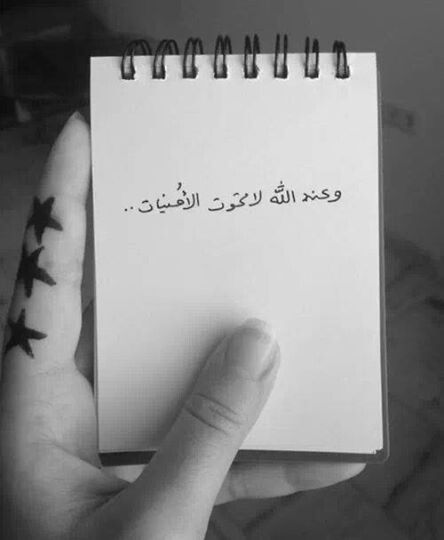 وعند الله لا تموت الأُمنيات ..